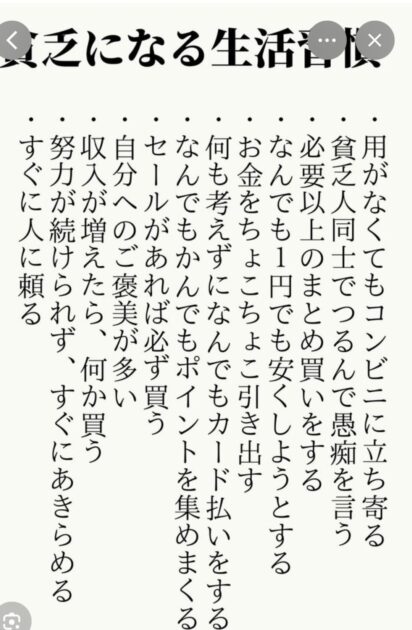 貧乏になる生活習慣
・用がなくてもコンビニに立ち寄る
・貧乏人同士でつるんで愚痴を言う
・必要以上のまとめ買いをする
・なんでも1円でも安くしようとする
・お金をちょこちょこ引き出す
・何も考えずになんでもカード払いをする
・なんでもかんでもポイントを集めまくる
・セールがあれば必ず買う
・自分へのご褒美が多い
・収入が増えたら、何か買う
・努力が続けられず、すぐにあきらめる
・すぐに人に頼る